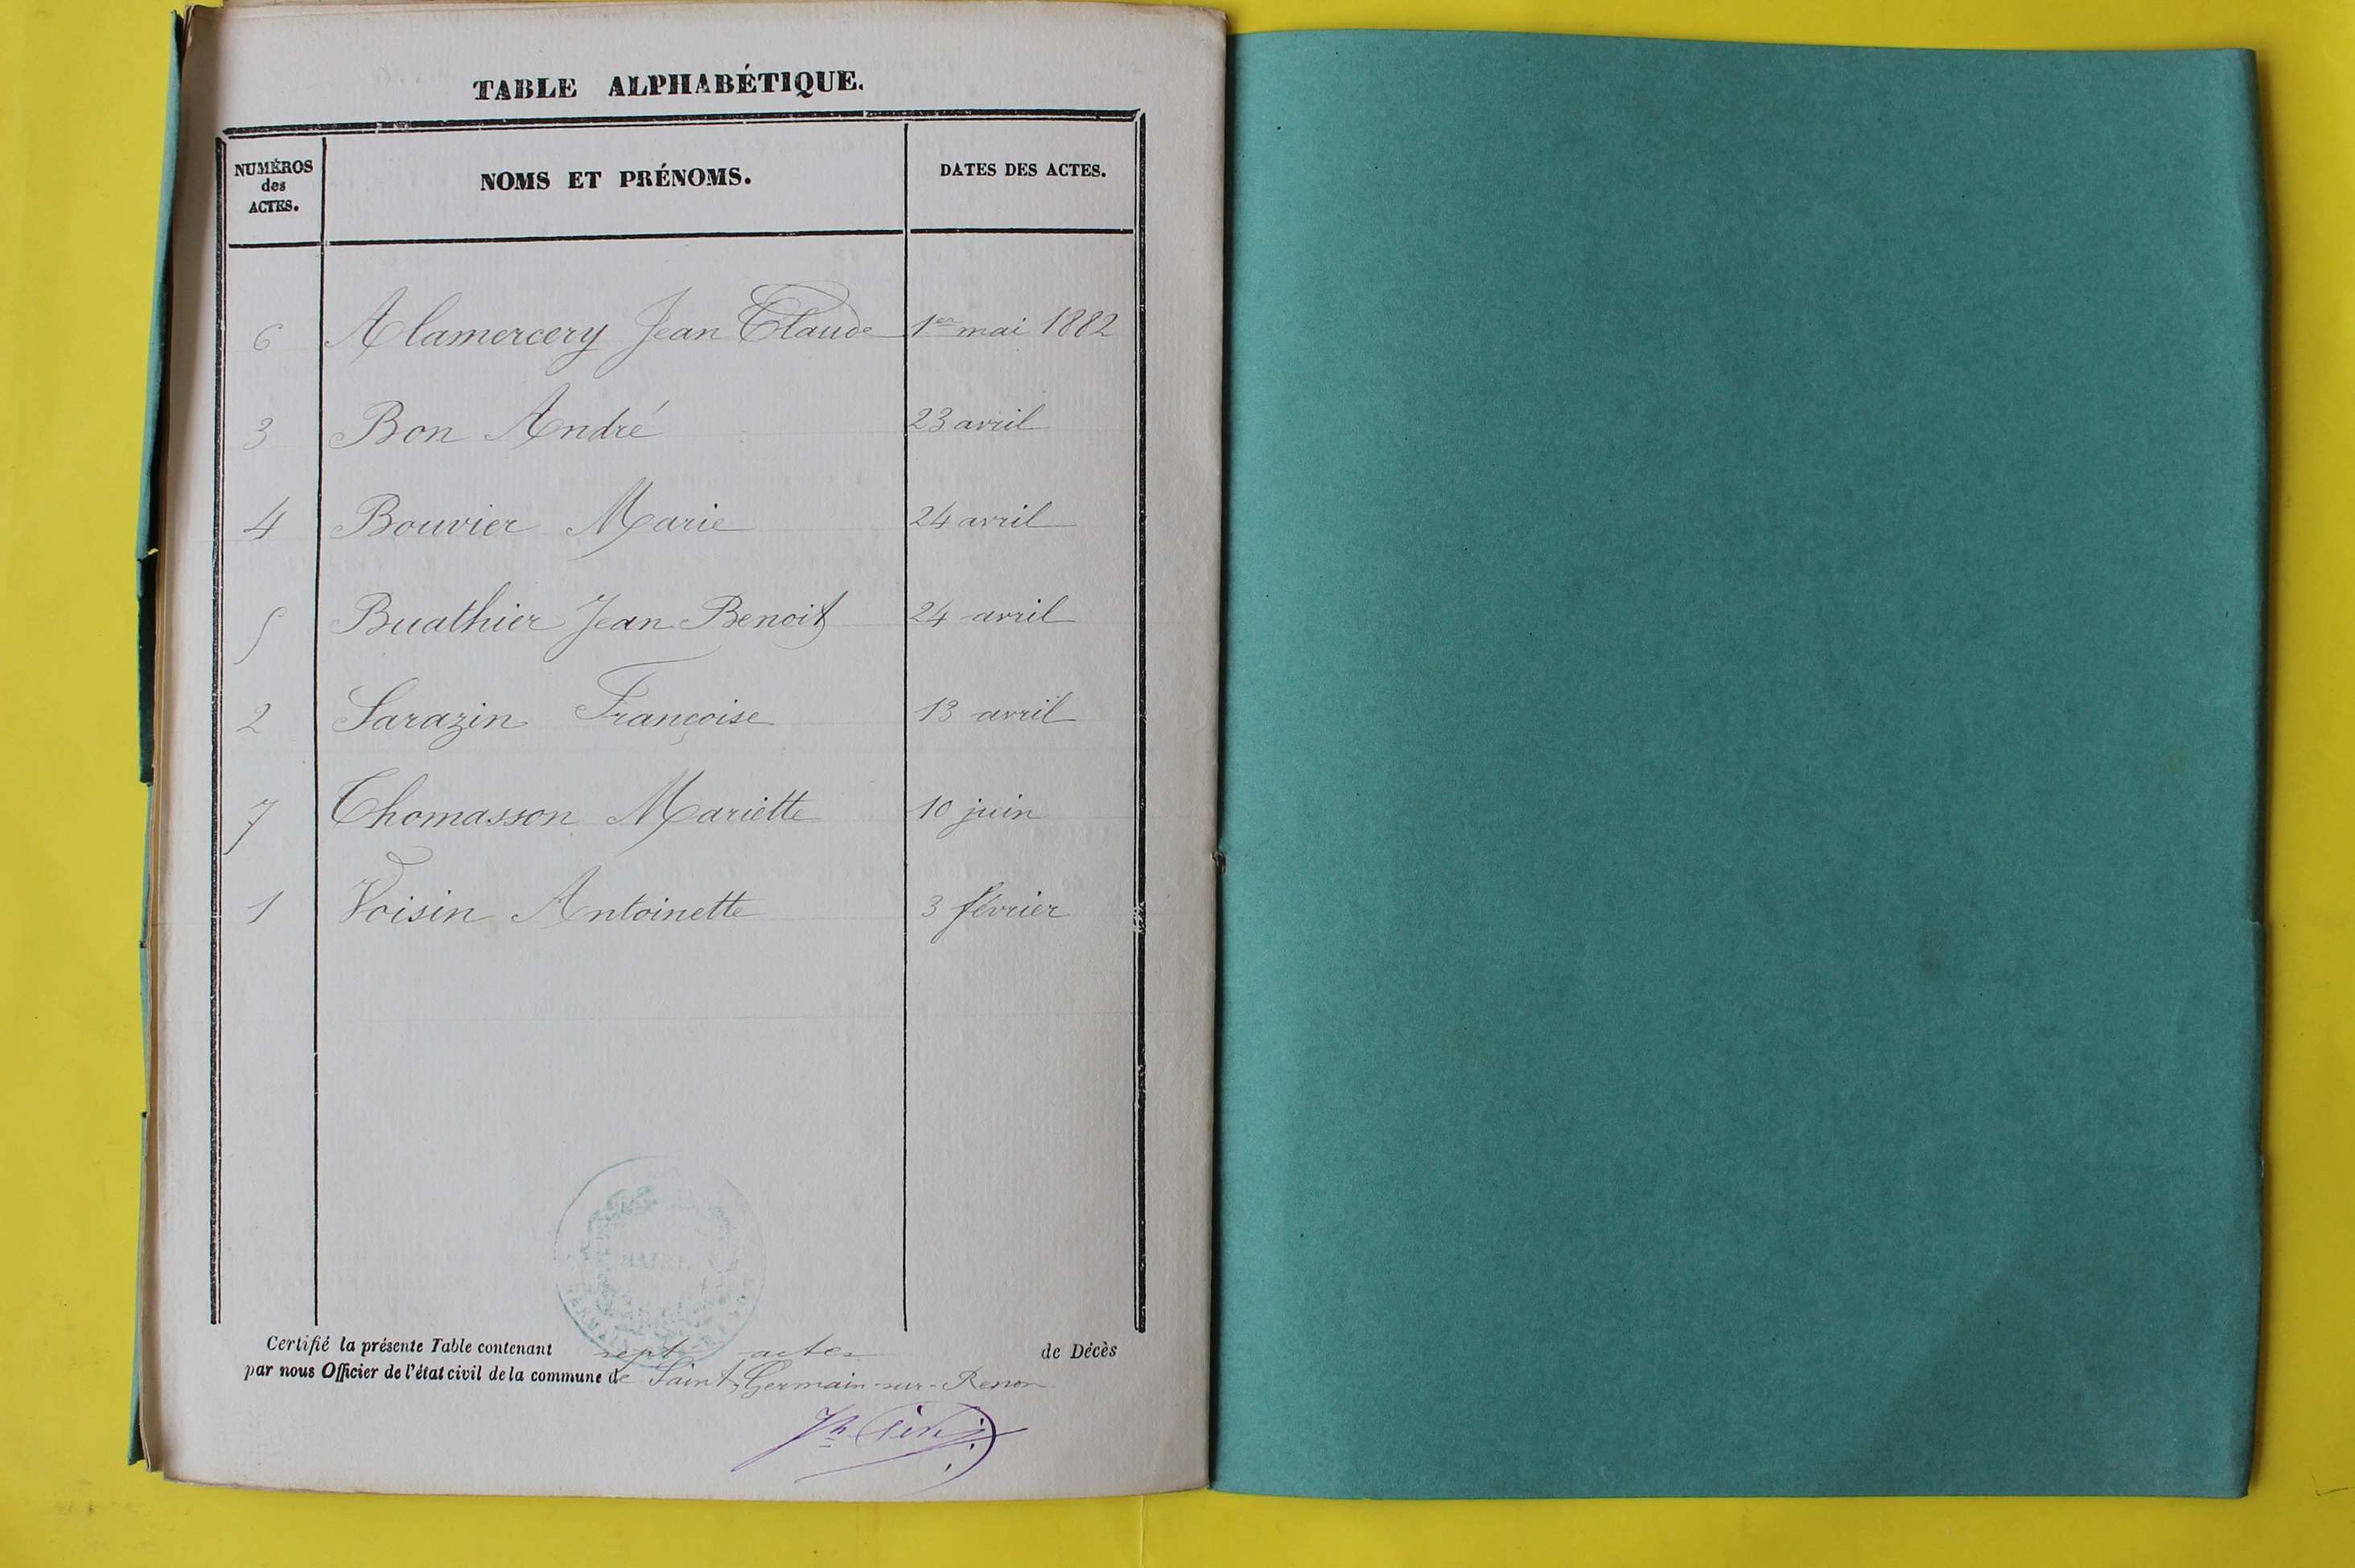 TABLE ALPHABÉTIQUE.
NUMÉROS des ACTES. NOMS ET PRÉNOMS. DATES DES ACTES.
6 Alamercery Jean Claude 1er mai 1882
3 Bon André 23 avril
4 Bouvier Marie 24 avril
5 Buathier Jean Benoit 24 avril
2 Sarazin Françoise 13 avril
7 Thomasson Mariette 10 juin
1 Voisin Antoinette 3 février
Certifié la présente Table contenant sept actes de Décès
par nous Officier de l'état civil de la commune de Saint-Germain-sur-Renon